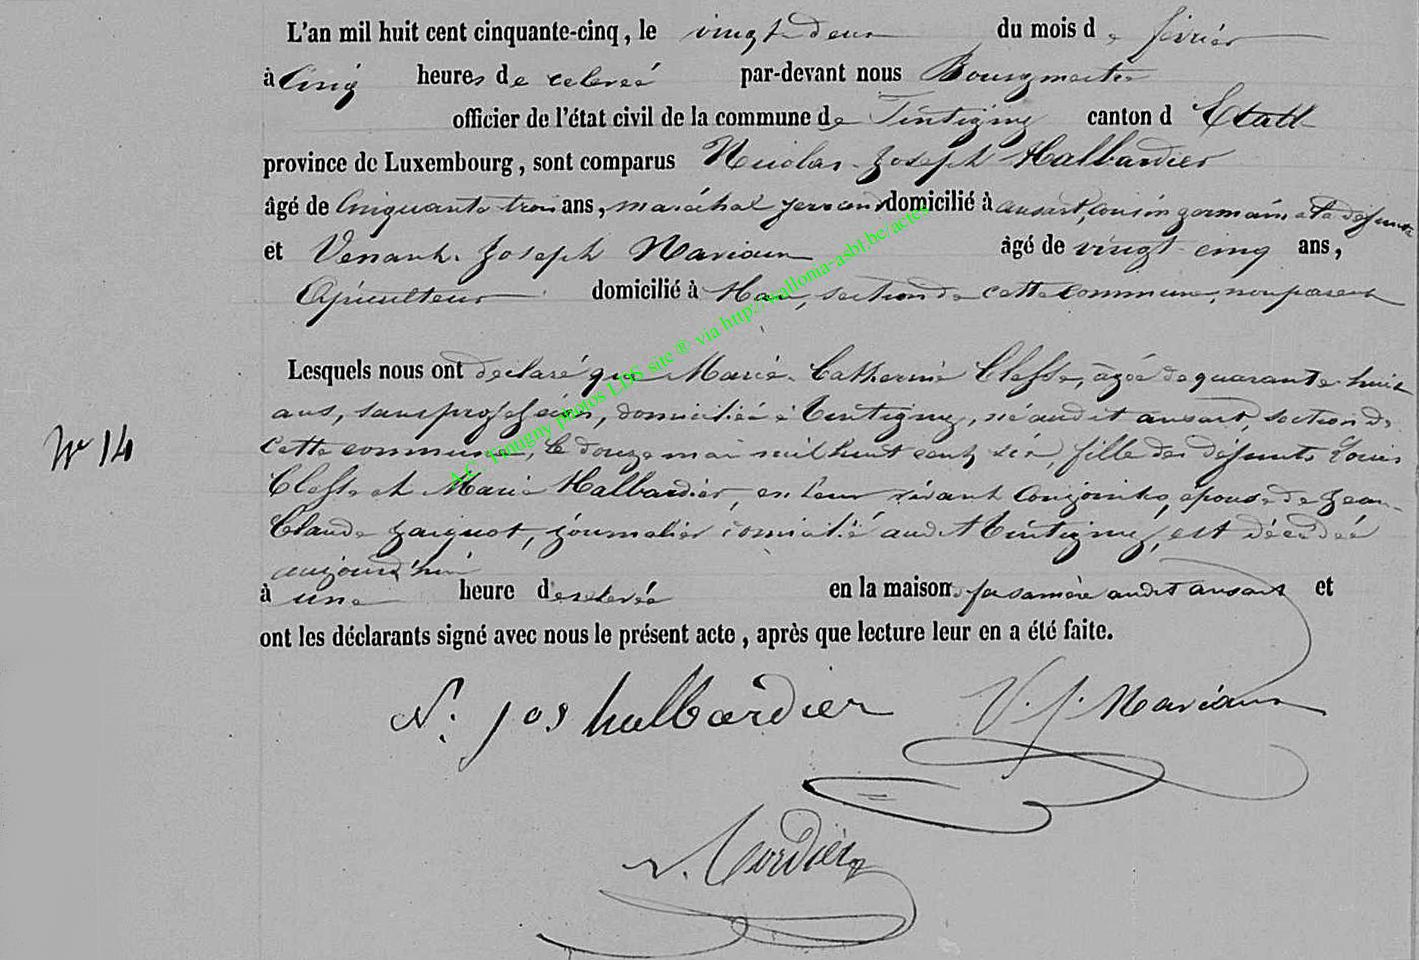 L'an mil huit cent cinquante-cinq, le vingt deux du mois de février
à cinq heures de relevée par-devant nous Bourgmestre
officier de l'état civil de la commune de Tintigny canton d'Etalle
province de Luxembourg, sont comparus Nicolas Joseph Halbardier
âgé de cinquante trois ans, maréchal ferrant domicilié à ansart, cousin germain à la défunte
et Venant Joseph Mariaux âgé de vingt cinq ans,
domicilié à Han, section de cette commune, non parent
Lesquels nous ont déclaré que Marie Catherine Cleffe, âgée de quarante huit
ans, sans profession, domiciliée à Tintigny, née audit ansart, section de
cette commune, le douze mai mil huit cent six, fille des défunts Louis
Cleffe et Marie Halbardier, en leur vivant conjoints, épouse de Jean
Claude Jacquot, journalier domicilié audit Tintigny, est décédée
aujourd'hui
à une heure de relevée en la maison de sa mère audit ansart et
ont les déclarants signé avec nous le présent acte, après que lecture leur en a été faite.
N° 14
N. jos halbardier V. J. Mariaux
A.C. Tintigny photos LDS site ® via http://wallonia-asbl.be/actes